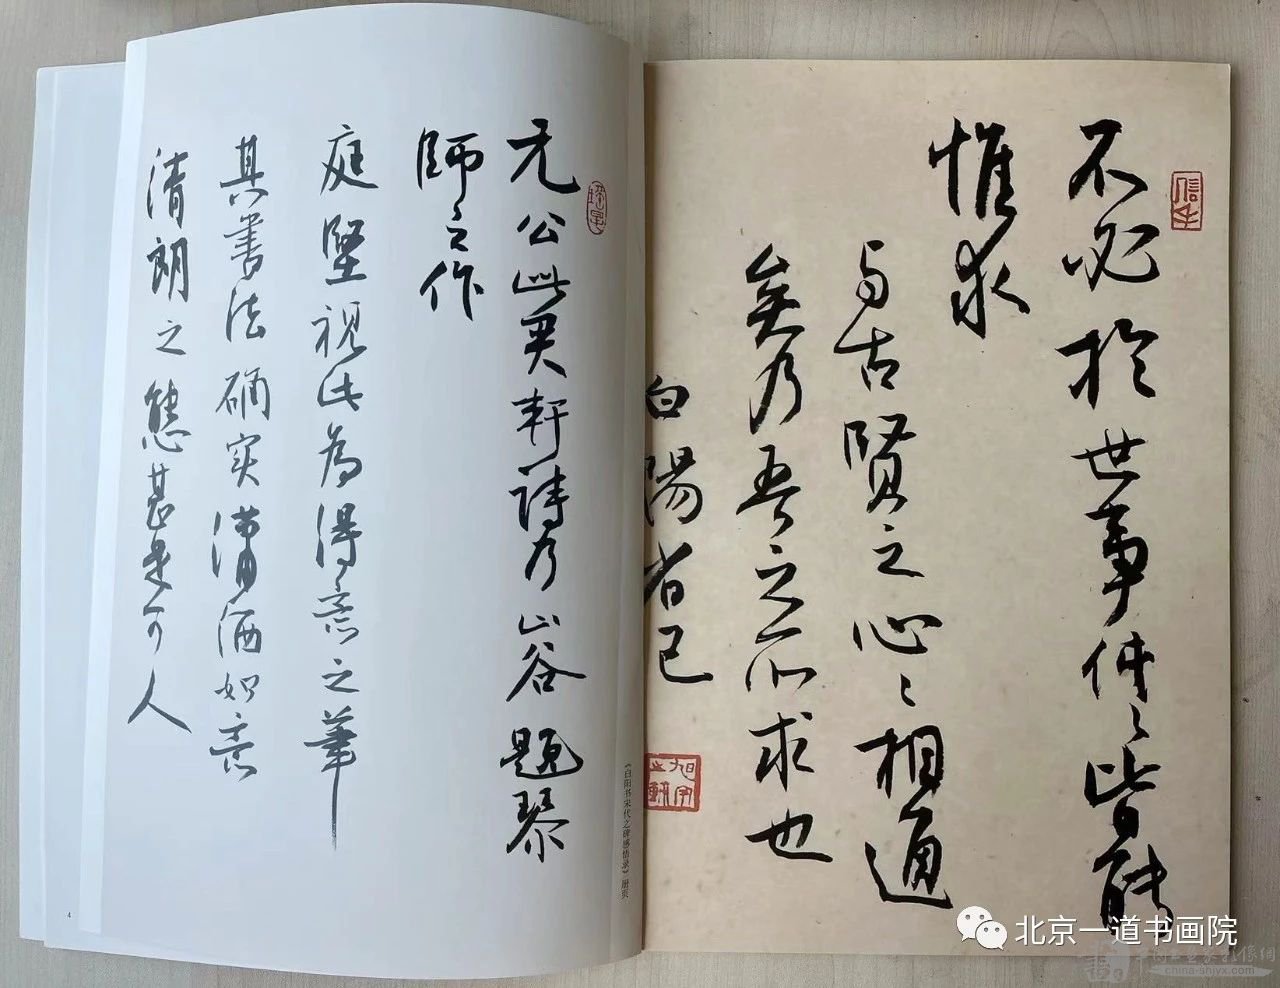 不必於世事件〻皆能
惟求
与古賢之心〻相通
矣乃吾之所求也
白陽省已
元公此君軒詩乃山谷題琴
師之作
庭堅視此為得意之筆
其書法確实瀟洒如意
清朗之態甚是可人
《白阳书宋代之碑感悟录》册页
4
北京一道书画院
china-shjyx.com